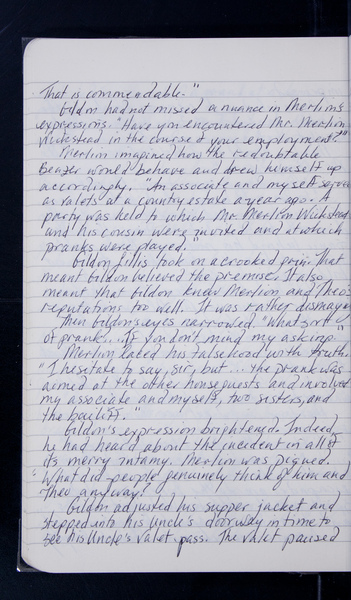 That is commendable."
Gildon had not missed a nuance in Merlin's
expressions. "Have you encountered Mr. Merlin
Wickstead in the course of your employment?"
Merlin imagined how the redoubtable
Benzer would behave and drew himself up
accordingly. "An associate and myself served
as valets at a country estate a year ago. A
party was held to which Mr. Merlin Wickstead
and his cousin were invited and at which
pranks were played."
Gildon Fillis took on a crooked grin. That
meant Gildon believed the premise. It also
meant that Gildon knew Merlin and Theo's
reputations too well. It was rather dismaying.
Then Gildon's eyes narrowed. "What sort
of prank... If you don't mind my asking."
Merlin laced his falsehood with truth.
"I hesitate to say, sir, but... the prank was
aimed at the other houseguests and involved
my associate and myself, two sisters, and
the bailiff."
Gildon's expression brightened. Indeed,
he had heard about the incident in all of
its merry infamy. Merlin was piqued.
What did people genuinely think of him and
Theo anyway?
Gildon adjusted his supper jacket and
stepped into his Uncle's doorway in time to
see his Uncle's valet pass. The valet paused